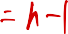 = h - 1